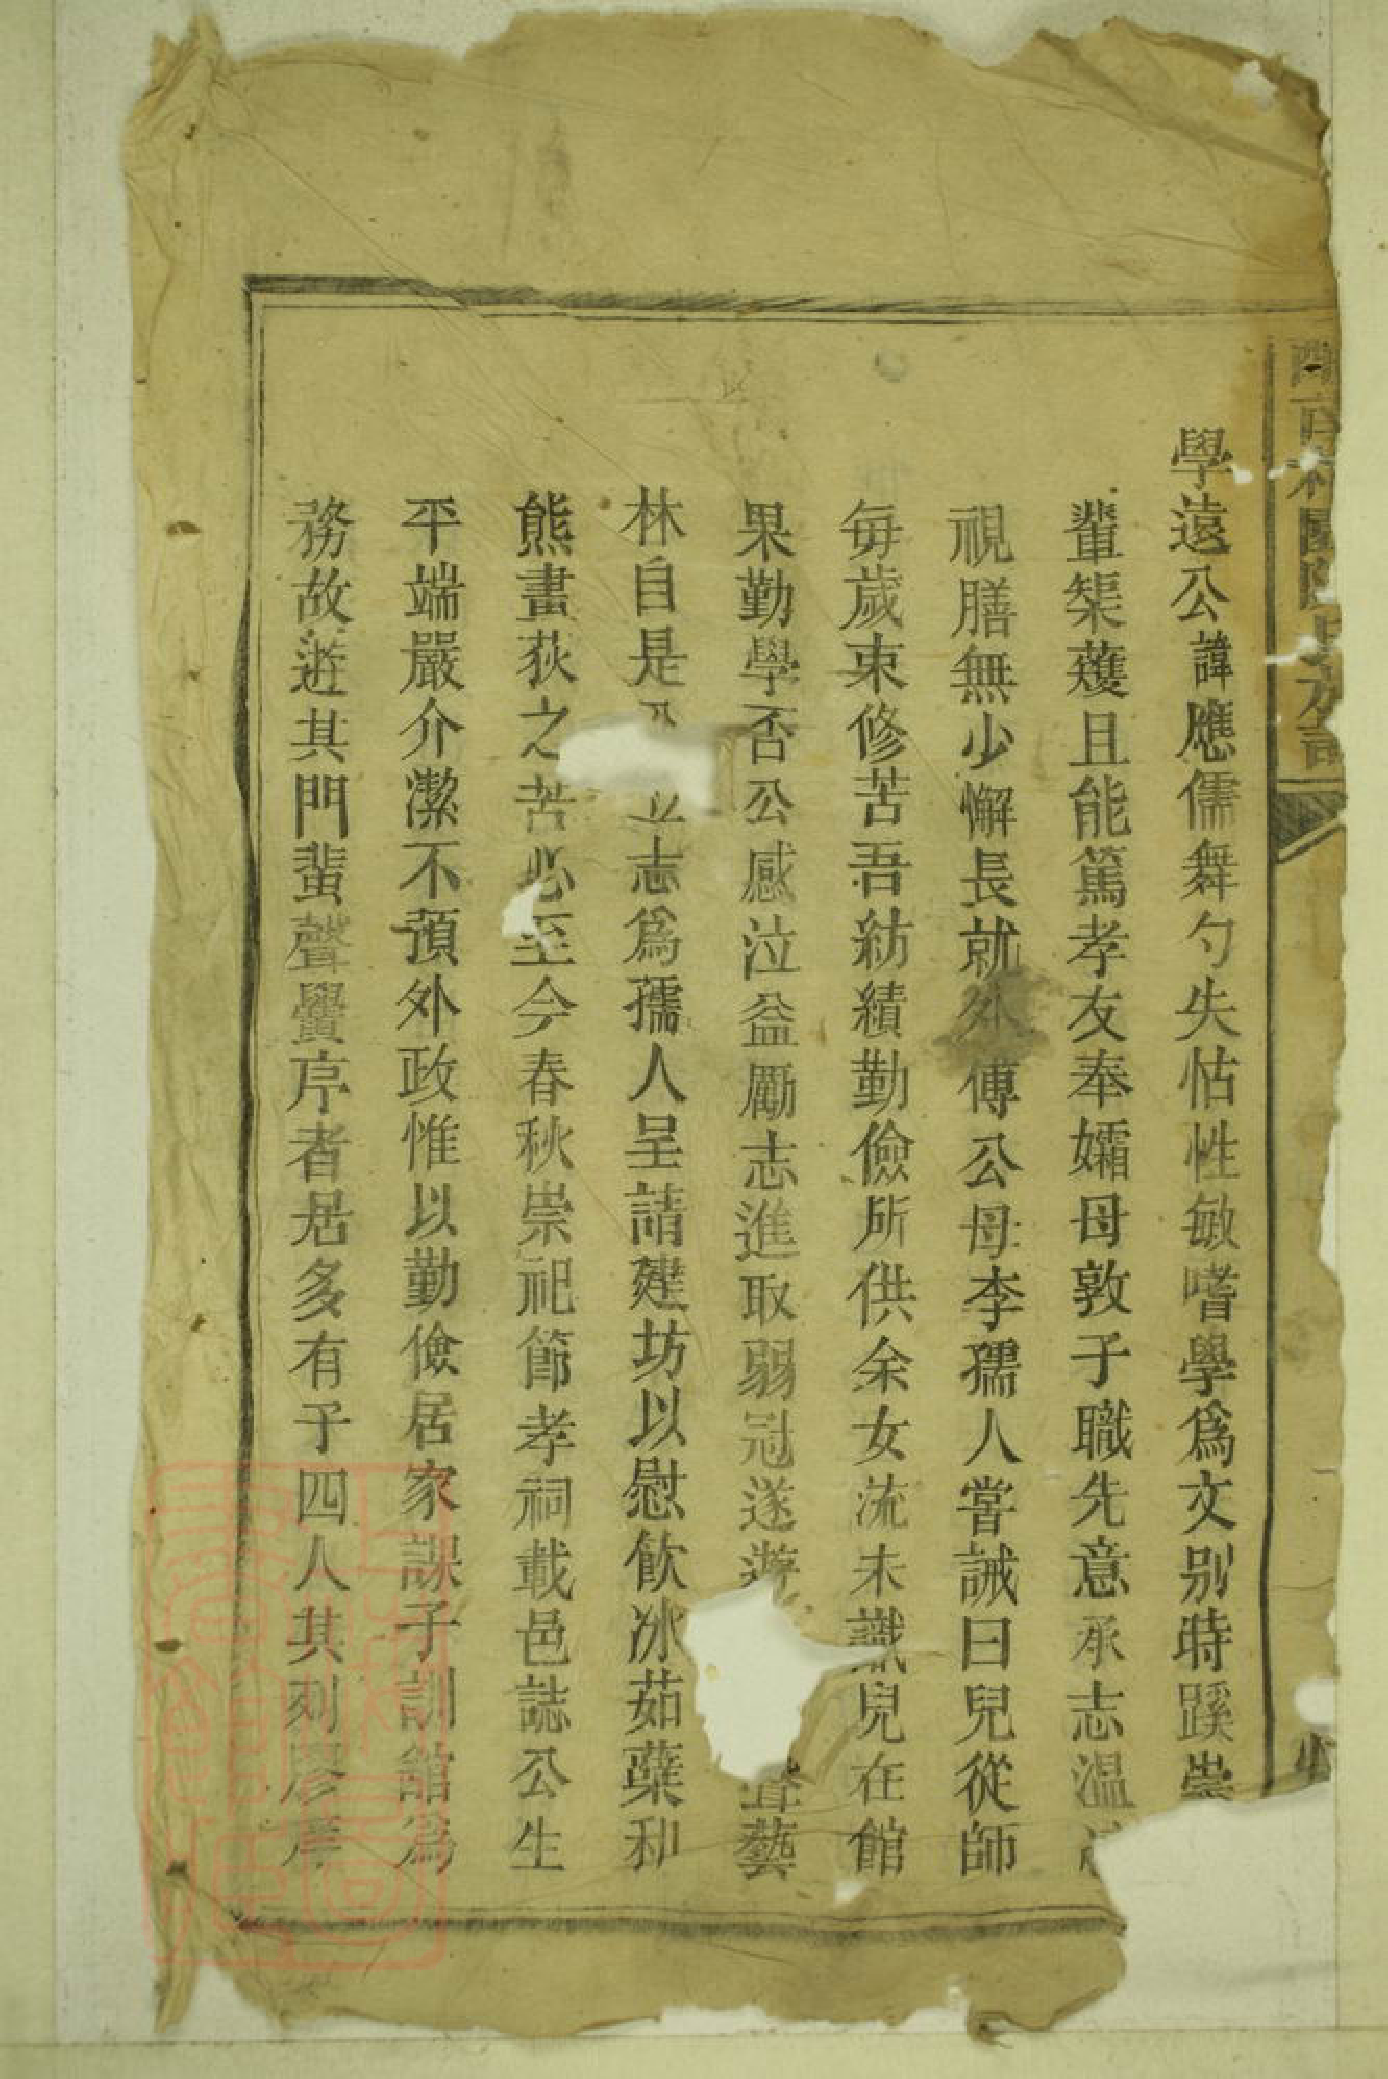 學遠公諱應儒舞勺失怙性敏嗜學爲文别時蹊崇
輩榘蒦且能篤孝友奉孀母敦子職先意承志温
視膳無少懈長就外傅公母李孺人甞誡曰兒從師
每歲束修苦吾紡績勤儉所供余女流未識兒在館
果勤學否公感泣益勵志進取弱冠遂遊聲藝
林自是乃立志爲孺人呈請建坊以慰飲冰茹蘖和
熊畫荻之苦必至今春秋崇祀節孝祠載邑誌公生
平端嚴介潔不預外政惟以勤儉居家課子訓舘爲
務故逰其門蜚聲黌序者居多有子四人其列膠庠